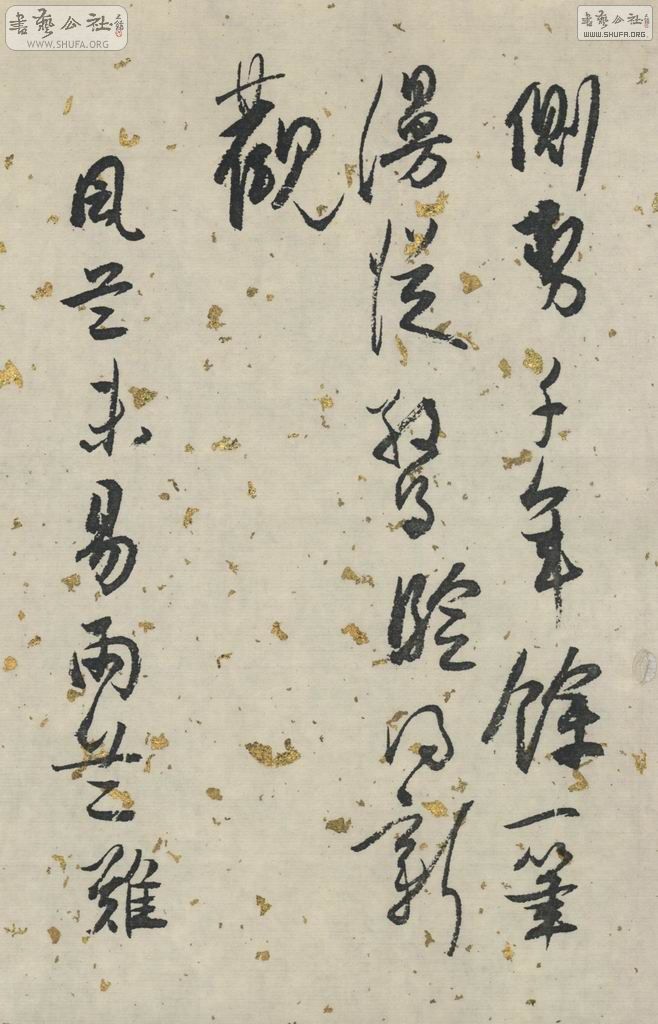 書藝公社
WWW.SHUFA.ORG
書藝公社
WWW.SHUFA.ORG
側 千年餘一筆
漫從 驗 新
觀
風 未易兩 難